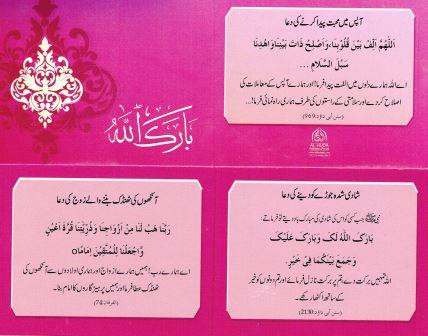 آپس میں محبت پیدا کرنے کی دعا
اَللّٰهُمَّ اَلِّفْ بَيْنَ قُلُوْبِنَا، وَاَصْلِحْ ذَاتَ بَيْنِنَا وَاهْدِنَا
سُبُلَ السَّلَامِ ...
اے اللہ ہمارے دلوں میں الفت پیدا فرما! اور ہمارے آپس کے معاملات کی
اصلاح کر دے اور سلامتی کے راستوں کی طرف ہماری راہنمائی فرما!...
(سنن ابی داؤد:969)
AL-HUDA
بارك الله
آنکھوں کی ٹھنڈک بننے والے زوج کی دعا
رَبَّنَا هَبْ لَنَا مِنْ اَزْوَاجِنَا وَذُرِّيّٰتِنَا قُرَّةَ اَعْيُنٍ
وَّاجْعَلْنَا لِلْمُتَّقِيْنَ اِمَامًاo
اے ہمارے رب! ہمیں ہمارے ازواج اور ہماری اولادوں سے آنکھوں کی
ٹھنڈک عطا فرما اور ہمیں پرہیزگاروں کا امام بنا۔
(الفرقان:74)
شادی شدہ جوڑے کو دینے کی دعا
نبی ﷺ جب کسی کو اس کی شادی کی مبارک باد دیتے تو فرماتے:
بَارَكَ اللّٰهُ لَكَ وَبَارَكَ عَلَيْكَ
وَجَمَعَ بَيْنَكُمَا فِيْ خَيْرٍ.
اللہ تمہیں برکت دے، تم پر برکت نازل فرمائے اور تم دونوں کو خیر
کے ساتھ اکٹھا رکھے۔
(سنن ابی داؤد:2130)